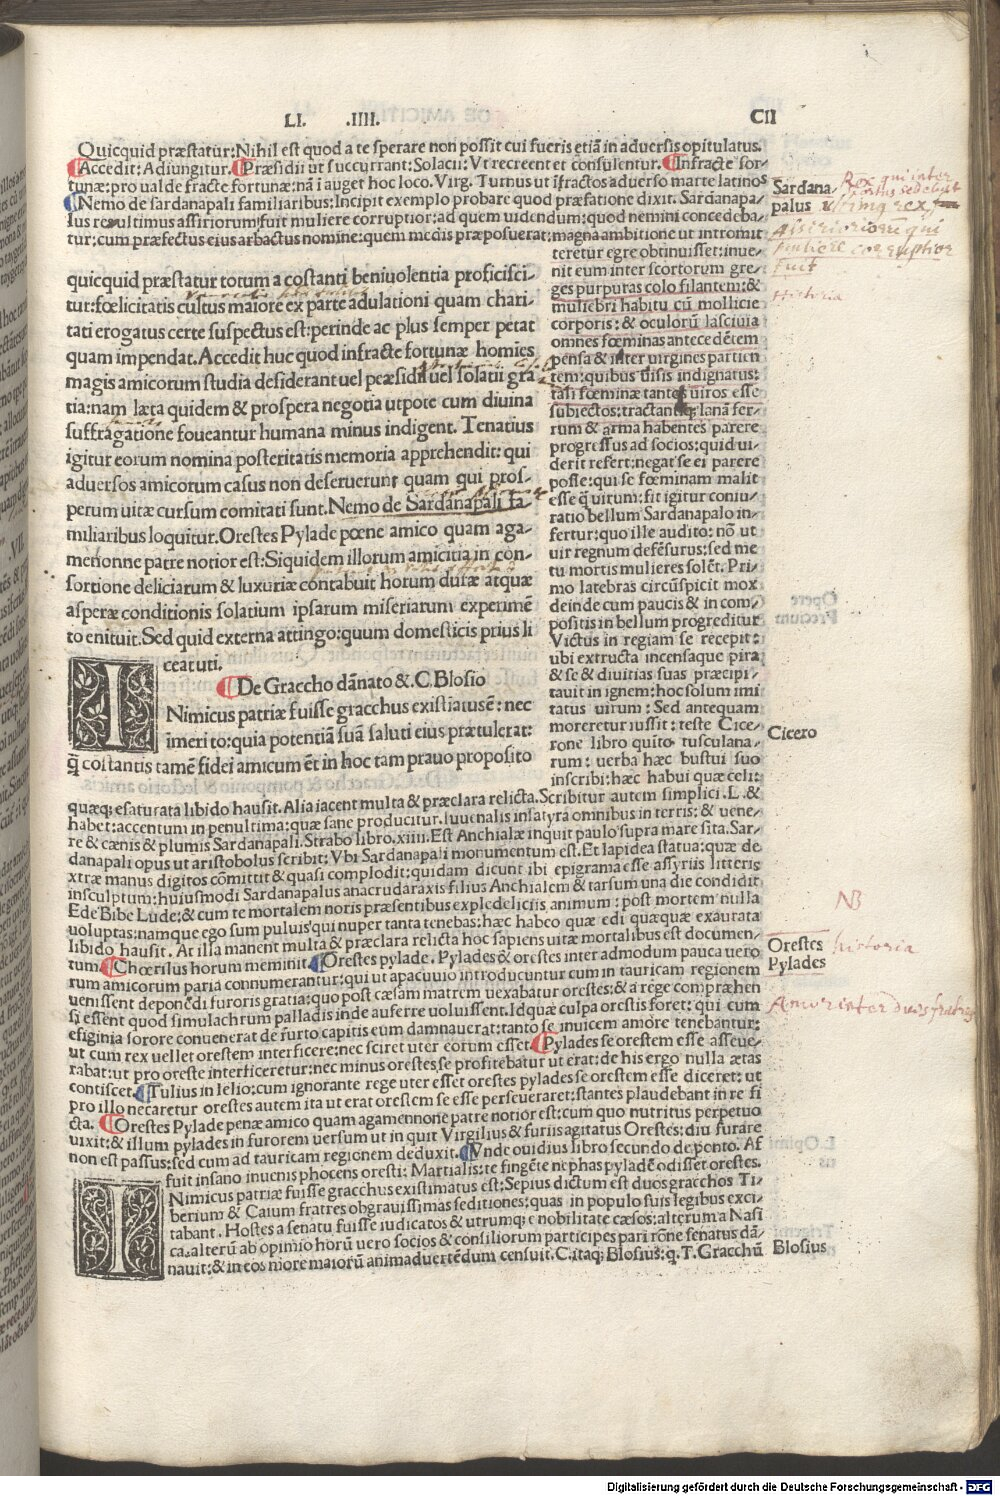 LI. .IIII. CII
Quicquid præstatur:Nihil est quod a te sperare non possit cui fueris etiā in aduersis opitulatus.
Accedit:Adiungitur. Præsidii ut succurrant:Solacii:Vt recreent et consulentur. Infracte for-
tunæ:pro ualde fracte fortunæ:nā i auget hoc loco. Virg. Turnus ut īfractos aduerso marte latinos
Nemo de sardanapali familiaribus:Incipit exemplo probare quod præfatione dixit. Sardanapa-
lus rex ultimus assiriorum fuit muliere corruptior:ad quem uidendum:quod nemini concedeba-
tur:cum præfectus eius arbactus nomine:quem medis præposuerat:magna ambitione ut intromit
teretur egre obtinuisset:inue-
nit eum inter scortorum gre-
ges purpuras colo filantem:&
muliebri habitu cū mollicie
corporis:& oculorū lasciuia
omnes fœminas antecedētem
pensa & inter virgines partien
tem:quibus uisis indignatus:
tali fœminæ tantos uiros esse
subiectos:tractantiq; lanā fer-
rum & arma habentes parere
progressus ad socios:quid ui-
derit refert:negat se ei parere
posse:qui se fœminam malit
esse q̄ uirum:fit igitur coniu-
ratio bellum Sardanapalo in-
fertur:quo ille audito:nō ut
uir regnum defēsurus:sed me
tu mortis mulieres solēt. Pri-
mo latebras circūspicit mox
deinde cum paucis & in com-
positis in bellum progreditur
Victus in regiam se recepit:
ubi extructa incensaque pira
& se & diuitias suas præcipi-
tauit in ignem:hoc solum imi
tatus uirum: Sed antequam
moreretur iussit: teste Cice-
rone libro quīto tusculana-
rum: uerba hæc bustui suo
inscribi:hæc habui quæ edi:
quicquid præstatur totum a costanti beniuolentia proficisci-
tur:fœlicitatis cultus maiore ex parte adulationi quam chari-
tati erogatus certe suspectus est:perinde ac plus semper petat
quam impendat. Accedit huc quod infracte fortunæ homīes
magis amicorum studia desiderant uel peæsidii uel solatii gra
tia:nam læta quidem & prospera negotia utpote cum diuina
suffragatione foueantur humana minus indigent. Tenatius
igitur eorum nomina posteritatis memoria apprehendit: qui
aduersos amicorum casus non deseruerunt quam qui pros-
perum uitæ cursum comitati sunt. Nemo de Sardanapali fa-
miliaribus loquitur. Orestes Pylade pœne amico quam aga-
menonne patre notior est:Siquidem illorum amicitia in con-
sortione deliciarum & luxuriæ contabuit horum duræ atquæ
asperæ conditionis solatium ipsarum miseriarum experimē
to enituit. Sed quid externa attingo:quum domesticis prius li
ceat uti.
De Graccho dānato & .C.Blosio
INimicus patriæ fuisse gracchus existiatus ē: nec
īmerito:quia potentiā suā saluti eius prætulerat:
q̄ costantis tamē fidei amicum ēt in hoc tam prauo proposito
quæq; esaturata libido hausit. Alia iacent multa & præclara relicta. Scribitur autem simplici .L. &
habet:accentum in penultima:quæ sane producitur. Iuuenalis insatyra omnibus in terris: & uene-
re & cænis & plumis Sardanapali. Strabo libro.xiiii. Est Anchialæ inquit paulo supra mare sita. Sar-
danapali opus ut aristobolus scribit: Vbi Sardanapali monumentum est. Et lapidea statua:quæ de
xtræ manus digitos cōmittit & quasi complodit:quidam dicunt ibi epigrama esse assyriis litteris
insculptum:huiusmodi Sardanapalus anacrudaraxis filius Anchialem & tarsum una die condidit
Ede Bibe Lude:& cum te mortalem noris præsentibus exple deliciis animum: post mortem nulla
uoluptas:namque ego sum puluis qui nuper tanta tenebas: hæc habeo quæ edi quæquæ exaurata
libido hausit. At illa manent multa & præclara relicta hoc sapiens uitæ mortalibus est documen-
tum. Chœrilus horum meminit. Orestes pylade. Pylades & orestes inter admodum pauca uero
rum amicorum paria connumerantur:qui ut apacuuio introducuntur cum in tauricam regionem
uenissent deponēdi furoris gratia:quo post cæsam matrem uexabatur orestes:& a rege compræhen
si essent quod simulachrum palladis inde auferre uoluissent. Id quæ culpa orestis foret: qui cum
efiginia sorore conuenerat de furto capitis eum damnauerat:tanto se inuicem amore tenebantur:
ut cum rex uellet orestem interficere:nec sciret uter eorum esset. Pylades se orestem esse asseue-
rabat:ut pro oreste interficeretur:nec minus orestes se profitebatur ut erat:de his ergo nulla ætas
conticset. Tulius in lelio:cum ignorante rege uter esset orestes pylades se orestem esse diceret: ut
pro illo necaretur orestes autem ita ut erat orestem se esse perseueraret:stantes plaudebant in re fi
cta. Orestes Pylade penæ amico quam agamennone patre notior est:cum quo nutritus perpetuo
uixit:& illum pylades in furorem uersum ut in quit Virgilius & furiis agitatus Orestes:diu furare
non est passus:sed cum ad tauricam regionem deduxit. Vnde ouidius libro secundo de ponto. Af
fuit insano inuenis phocens oresti: Martialis:te fingēte nephas pyladē odisset orestes.
INimicus patriæ fuisse gracchus existimatus est:Sepius dictum est duos gracchos Ti-
berium & Caium fratres obgrauissimas seditiones:quas in populo suis legibus exci-
tabant. Hostes a senatu fuisse iudicatos & utrumq; e nobilitate cæsos:alterum a Nasi
ca:alterū ab opimio horū uero socios & consiliorum participes pari rōne senatus dā-
nauit:& in eos more maiorū animaduertēdum censuit. C.itaq; Blosius:q.T.Gracchū
Sardana-
palus
Rex qui inter
ultimq rex
Assirioriorū qui
muliere corruptior
fuit
Historia
Cicero
NB
Orestes historia
Pylades
Amor inter duos fratres
Blosius
Digitalisierung gefördert durch die Deutsche Forschungsgemeinschaft - DFG